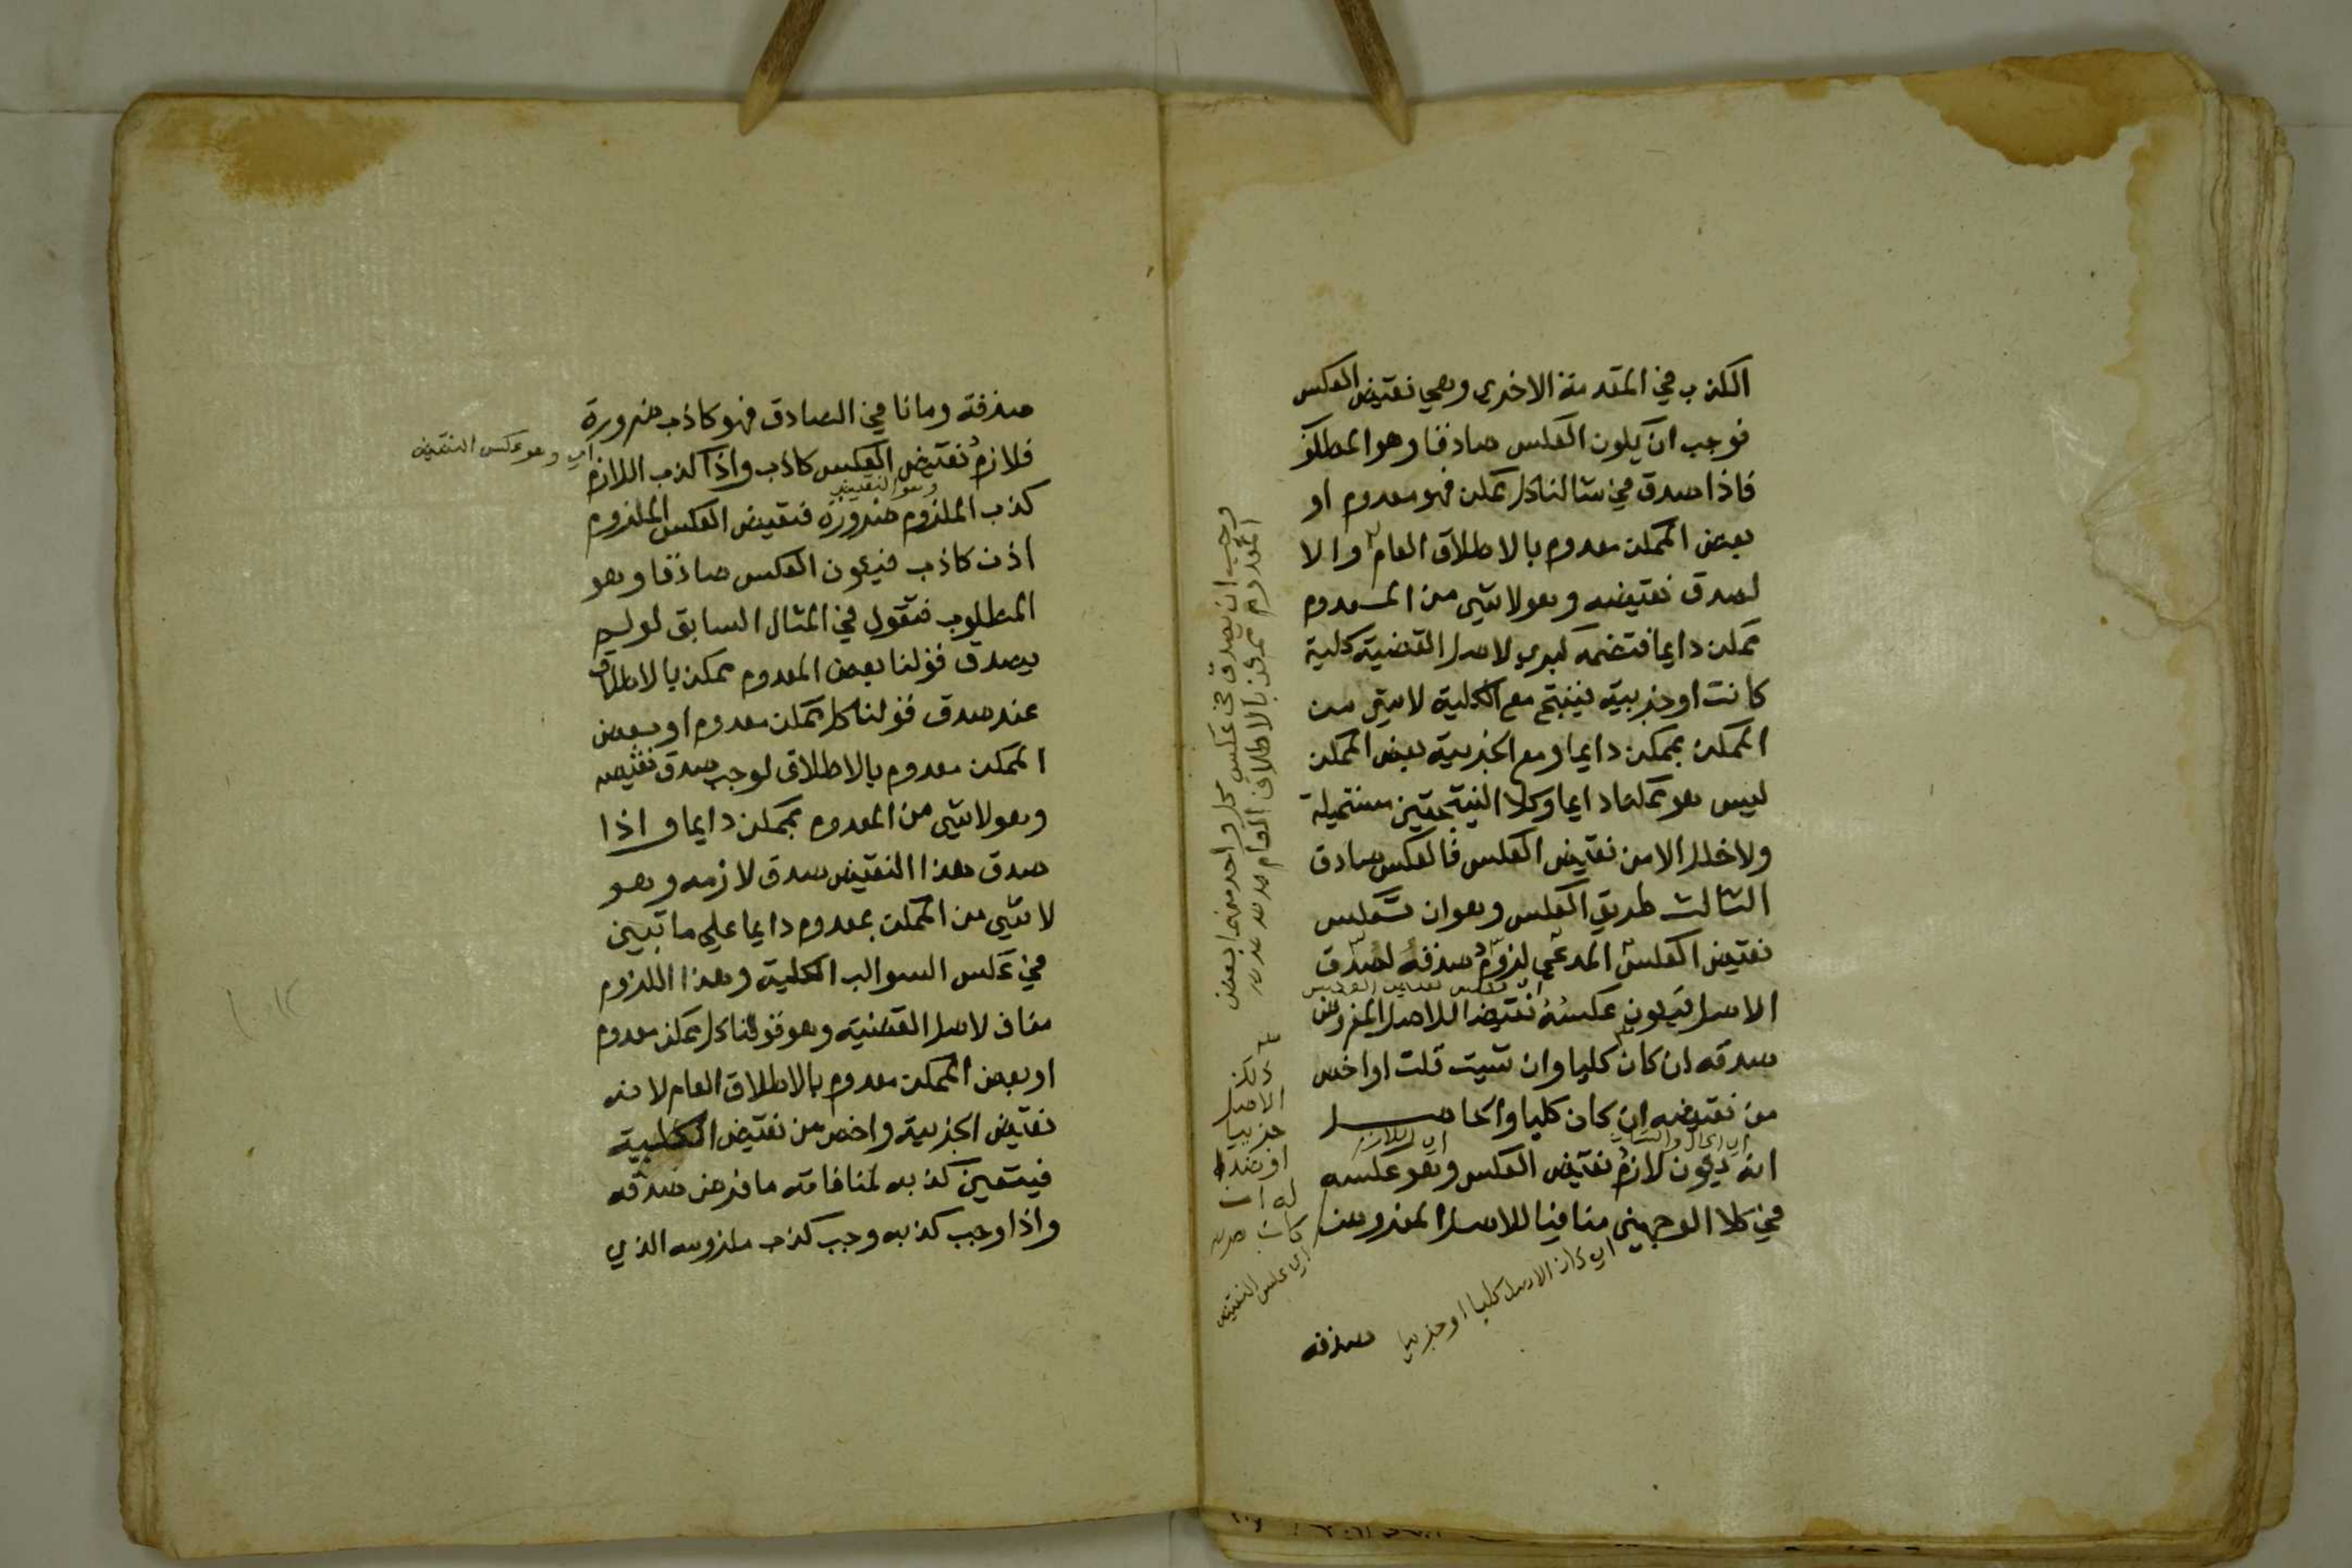 الكذب في المقدمة الاخرى وهي نقيض العكس
فوجب ان يكون العكس صادقا وهو المطلوب
فاذا صدق في مثالنا كل ممكن فهو معدوم او
بعض الممكن معدوم بالاطلاق العام والا
لصدق نقيضه وهو لا شي من المعدوم
بممكن دايما فتضمه كبرى لاصل القضية كلية
كانت او جزيية فينتج مع الكلية لا شي من
الممكن بممكن دايما ومع الجزيية بعض الممكن
ليس هو بممكن دايما وكلا النتيجتين مستحيلة
ولا خلل الا من نقيض العكس فالعكس صادق
الثالث طريق العكس وهو ان تعكس
نقيض العكس المدعى لزوم صدقه لصدق
اي عكس نقيض العكس
الاصل فيكون عكسه نقيضا للاصل المفروض
صدقه ان كان كليا وان شيت قلت او اخص
من نقيضه ان كان كليا والحاصل
اي الحال والشان
اي اللازم
انه يكون لازم نقيض العكس وهو عكسه
في كلا الوجهين منافيا للاصل المفروض
اي كان الاصل كليا او جزييا
اي عكس النقيض
صدقه
وجب ان يصدق في عكس كل واحد منهما بعض
المعدوم ممكن بالاطلاق العام
الاصل
جزييا
او ضدا
له ان
كان
صدقه وما نافي الصادق فهو كاذب ضرورة
فلازم نقيض العكس كاذب واذا كذب اللازم
اي وهو عكس النقيض
وهو النقيض
كذب الملزوم ضرورة فنقيض العكس الملزوم
اذن كاذب فيكون العكس صادقا وهو
المطلوب فنقول في المثال السابق لو لم
يصدق قولنا بعض المعدوم ممكن بالاطلاق
عند صدق قولنا كل ممكن معدوم او بعض
الممكن معدوم بالاطلاق لوجب صدق نقيضه
وهو لا شي من المعدوم بممكن دايما واذا
صدق هذا النقيض صدق لازمه وهو
لا شي من الممكن بمعدوم دايما على ما تبين
في عكس السوالب الكلية وهذا اللزوم
مناف لاصل القضية وهو قولنا كل ممكن معدوم
او بعض الممكن معدوم بالاطلاق العام لانه
نقيض الجزيية واخص من نقيض الكلية
فيتعين كذبه لمنافاته ما فرض صدقه
واذا وجب كذبه وجب كذب ملزومه الذي